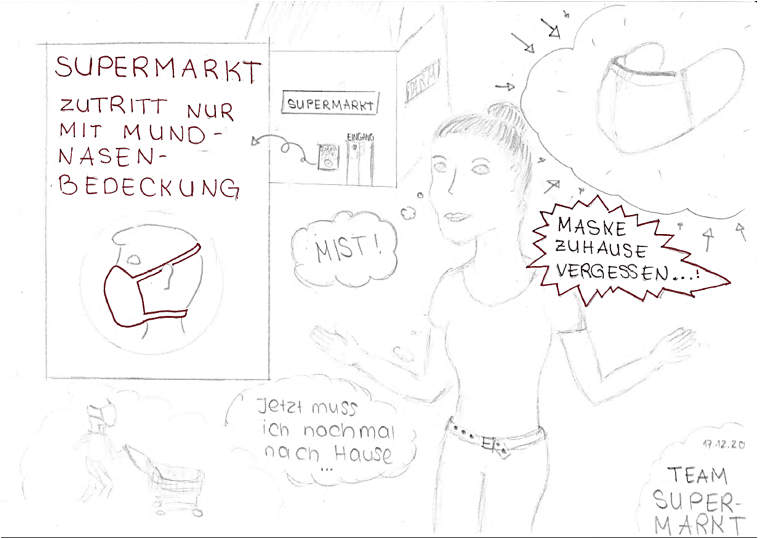 SUPERMARKT
ZUTRITT NUR
MIT MUND-
NASEN-
BEDECKUNG
SUPERMARKT
EINGANG
MIST!
MASKE
ZUHAUSE
VERGESSEN...!
Jetzt muss
ich nochmal
nach Hause
...
17.12.20
TEAM
SUPER-
MARKT